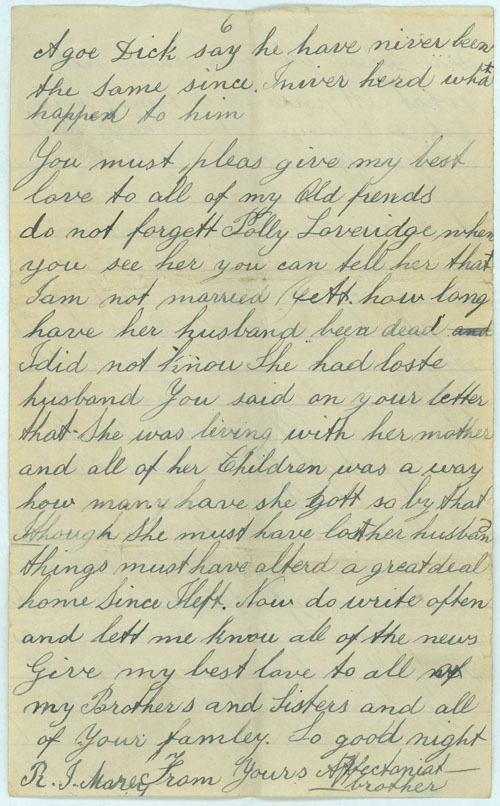 6
Agoe Dick say he have niver been
the same since. I niver herd what
happen to him
You must pleas give my best
love to all of my Old fiends
do not forgett Polly Loveridge when
you see her you can tell her that
I am not married yett. how long
have her husband been dead and
I did not know She had loste
husband You said on your letter
that She was living with her mother
and all of her Children was a way
how many have she gott so by that
I though She must have lost her husban
things must have alterd a great deal
home since I left. Now do write often
and lett me know all of the news
Give my best love to all of
my Brothers and Sisters and all
of Your famley. So good night
R. J. From Yours Affectoniat
brother